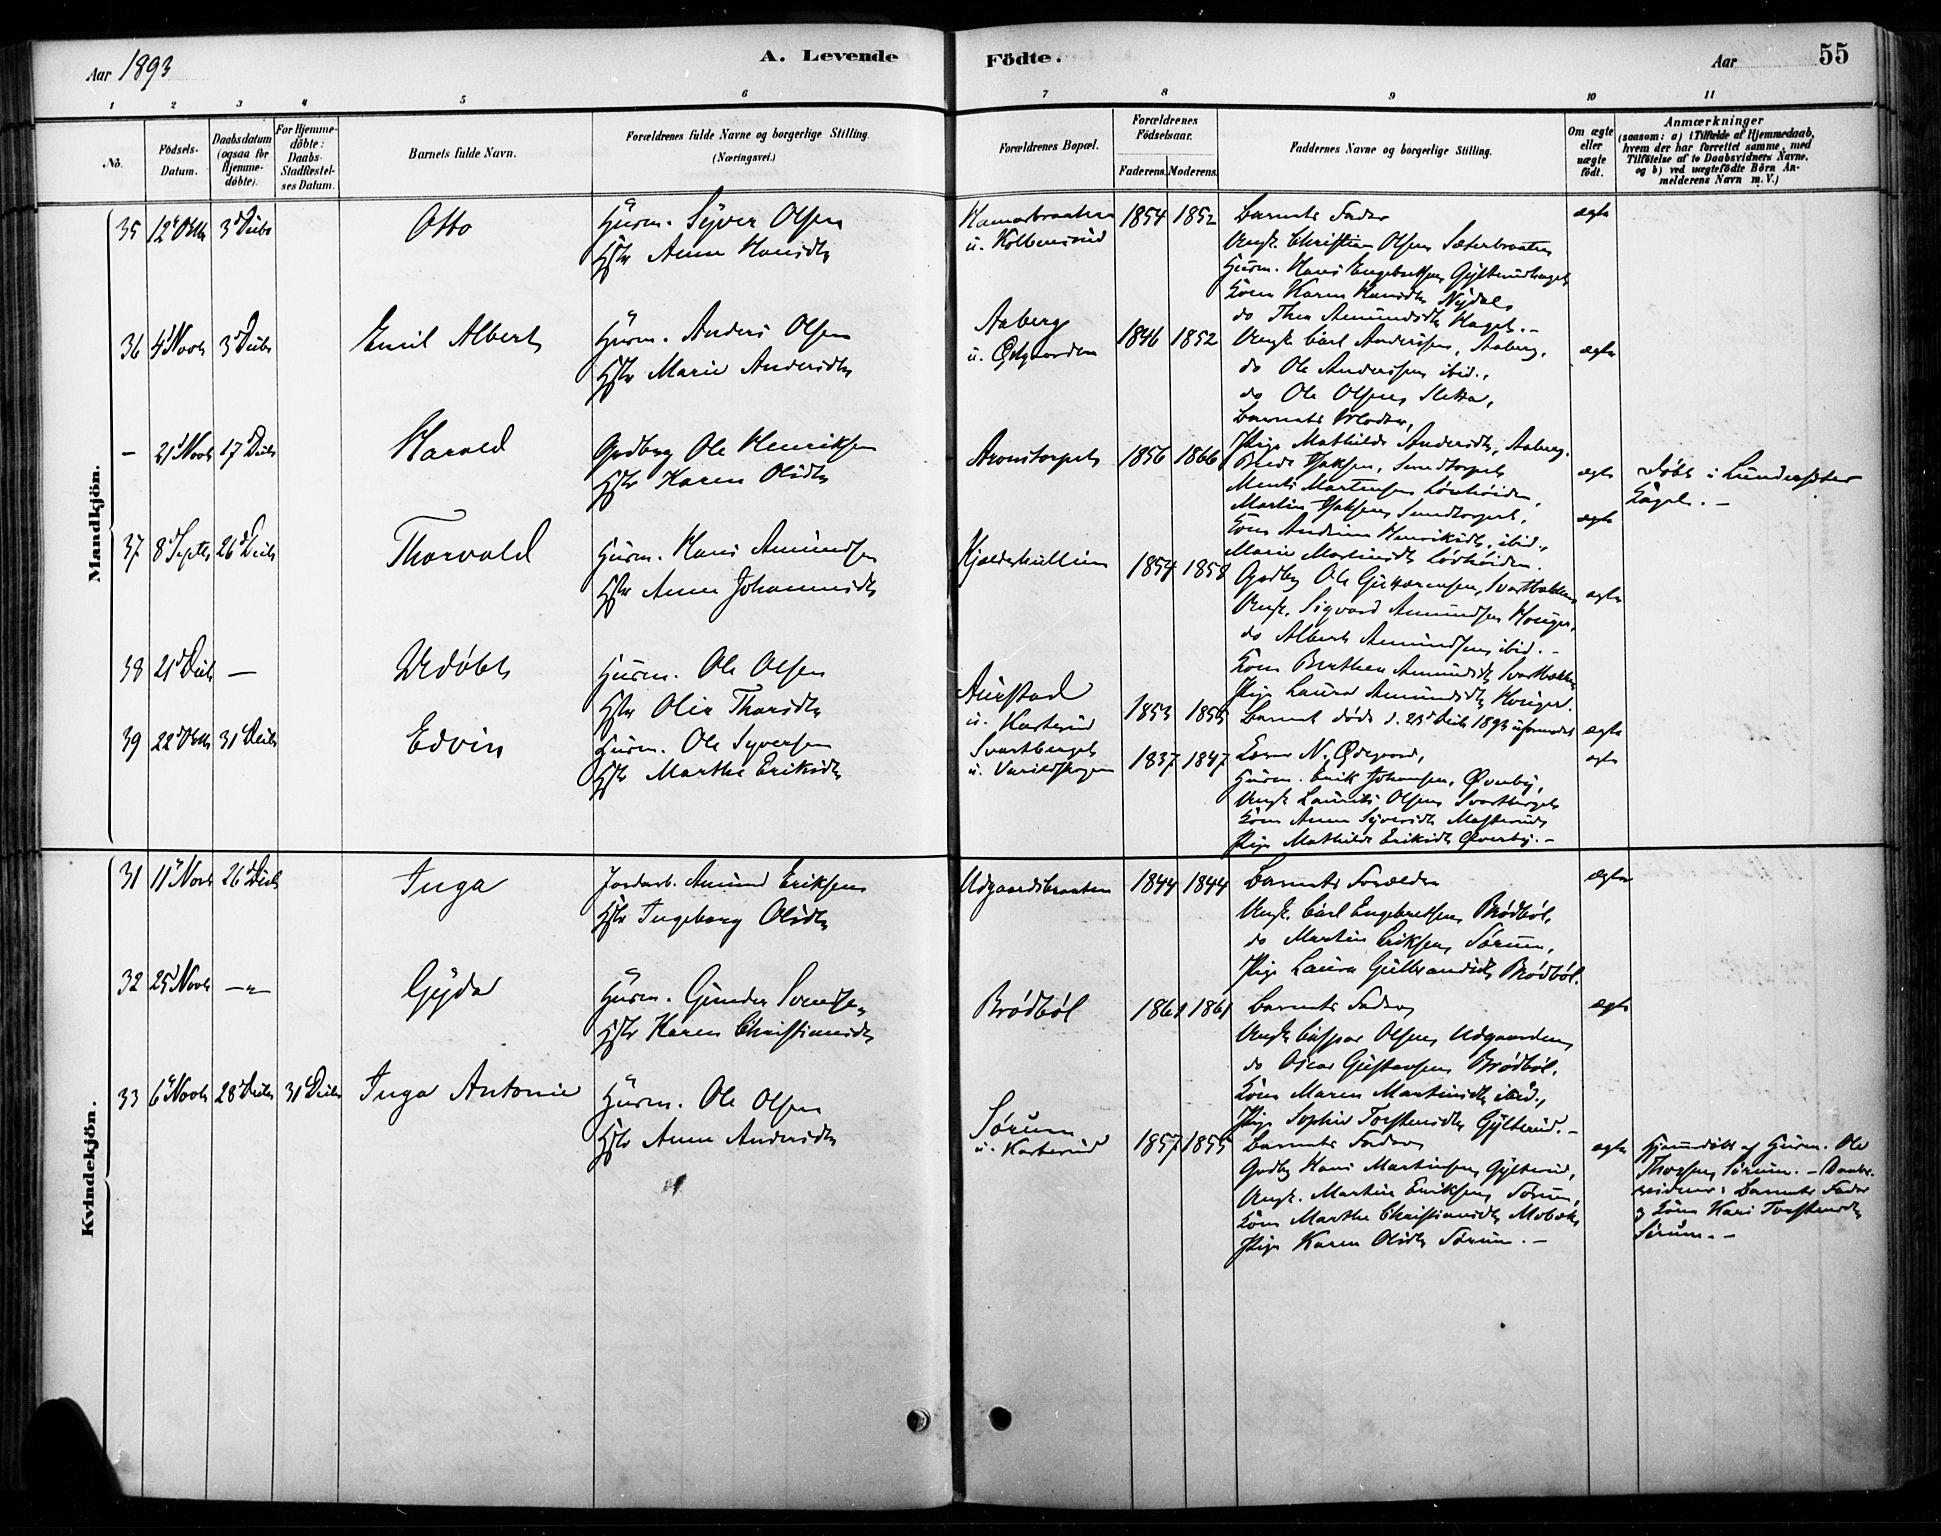 Aar 1893
A. Levende
Födte.
Aar
55
1 2 3 4 5 6 7 8 9 10 11
No.
Födsels-Datum.
Daabsdatum (ogsaa för Hjemme-döbte).
For Hjemme-döbte: Daabs-Stadfæstelses Datum.
Barnets fulde Navn.
Forældrenes fulde Navne og borgerlige Stilling. (Næringsvei.)
Forældrenes Bopæl.
Forældrenes Födselsaar.
Faderens. Moderens.
Faddernes Navne og borgerlige Stilling.
Om ægte eller uægte födt.
Anmærkninger
(saasom: a) i Tilfælde af Hjemmedaab, hvem der har forrettet samme, med Tilföielse af to Daabsvidners Navne, og b) ved uægtefödte Börn Anmelderens Navn m. V.)
Mandkjön.
35 12 Oktbr 3 Decbr Otto
Husm. Syver Olsen
Hstr Anne Hansdtr
u. Kolbensrud
1854 1852
Barnets Fader
Ungk. Christian Olsen Sæterbraaten
Husm. Hans Engebretsen Gylterudhaget
Kone Karen Hansdtr Nydal
do Thea Amundsdtr Haget. –
ægte
36 4 Novbr 3 Decbr Emil Albert
Husm. Anders Olsen
Hstr Marie Andersdtr
Aaberg
u. Østgaarden
1846 1852
Ungk. Carl Andersen, Aaberg,
do Ole Andersen ibid.,
do Ole Olsen, Sletta,
Barnets Moder,
Pige Mathilde Andersdtr, Aaberg.
ægte
– 21 Novbr 17 Decbr Harold
Gaardbr Ole Henriksen
Hstr Karen Olsdtr
Aronstorpet
1856 1866
Martin
Kone Andrine Henriksdtr, ibid.,
Marie Martinsdtr
ægte
Døbt i Lundersæter
Kapel. –
37 8 Septbr 26 Decbr Thorvald
Husm. Hans Amundsen
Hstr Anne Johannesdtr
1854 1858
Ungk. Sigvard Amundsen
do Albert Amundsen, ibid. –
Kone Berthea Amundsdtr Svartbakken
Pige Laura Amundsdtr
ægte
38 21 Decbr – Udøbt
Husm. Ole Olsen
Hstr Olia Thorsdtr
Aurstad
u. Kasterud
1853 1855
Barnet døde d. 23 Decbr 1893
ægte
39 22 Oktbr 31 Decbr Edvin
Husm. Ole Syversen
Hstr Marthe Eriksdtr
Svartberget
u. Varildskogen
1837 1847
Lærer N. Ødegaard,
Husm. Erik Johansen, Øverby,
Ungk Laurits Olsen Svartberget
Kone Anne Syversdtr Masterud,
Pige Mathilde Eriksdtr Øverby. –
ægte
Kvindekjön.
31 11 Novbr 26 Decbr Inga
Jordarb. Amund Eriksen
Hstr Ingeborg Olsdtr
Udgaardsbraaten
1844 1844
Barnets Forældre
Ungk. Carl Engebretsen Brødbøl,
do Martin Eriksen Sørum,
Pige Laura Gulbrandsdtr Brødbøl.
ægte
32 25 Novbr –"– Gyda
Husm. Gunder Svendsen
Hstr Karen Christiansdtr
Brødbøl
1861 1861
Barnets Fader
Ungk Caspar Olsen Udgaarden
do Oscar Gustavsen Brødbøl.
Kone Maren Martinsdtr ibid.,
Pige Sophie Torstensdtr Gylterud. –
ægte
33 6 Novbr 28 Decbr 31 Decbr Inga Antonie
Husm. Ole Olsen
Hstr Anne Andersdtr
Sørum
u. Kasterud
1857 1855
Barnets Fader
Gaardbr Hans Martinsen Gylterud,
Ungk. Martin Eriksen Sørum,
Kone Marthe Christiansdtr Mobæk,
Pige Karen Olsdtr Sørum. –
ægte
Hjemmedøbt af Husm. Ole
Thorsen, Sørum. – Daabs-
vidner: Barnets Fader
og Kone Kari Torstensdtr
Sørum. –